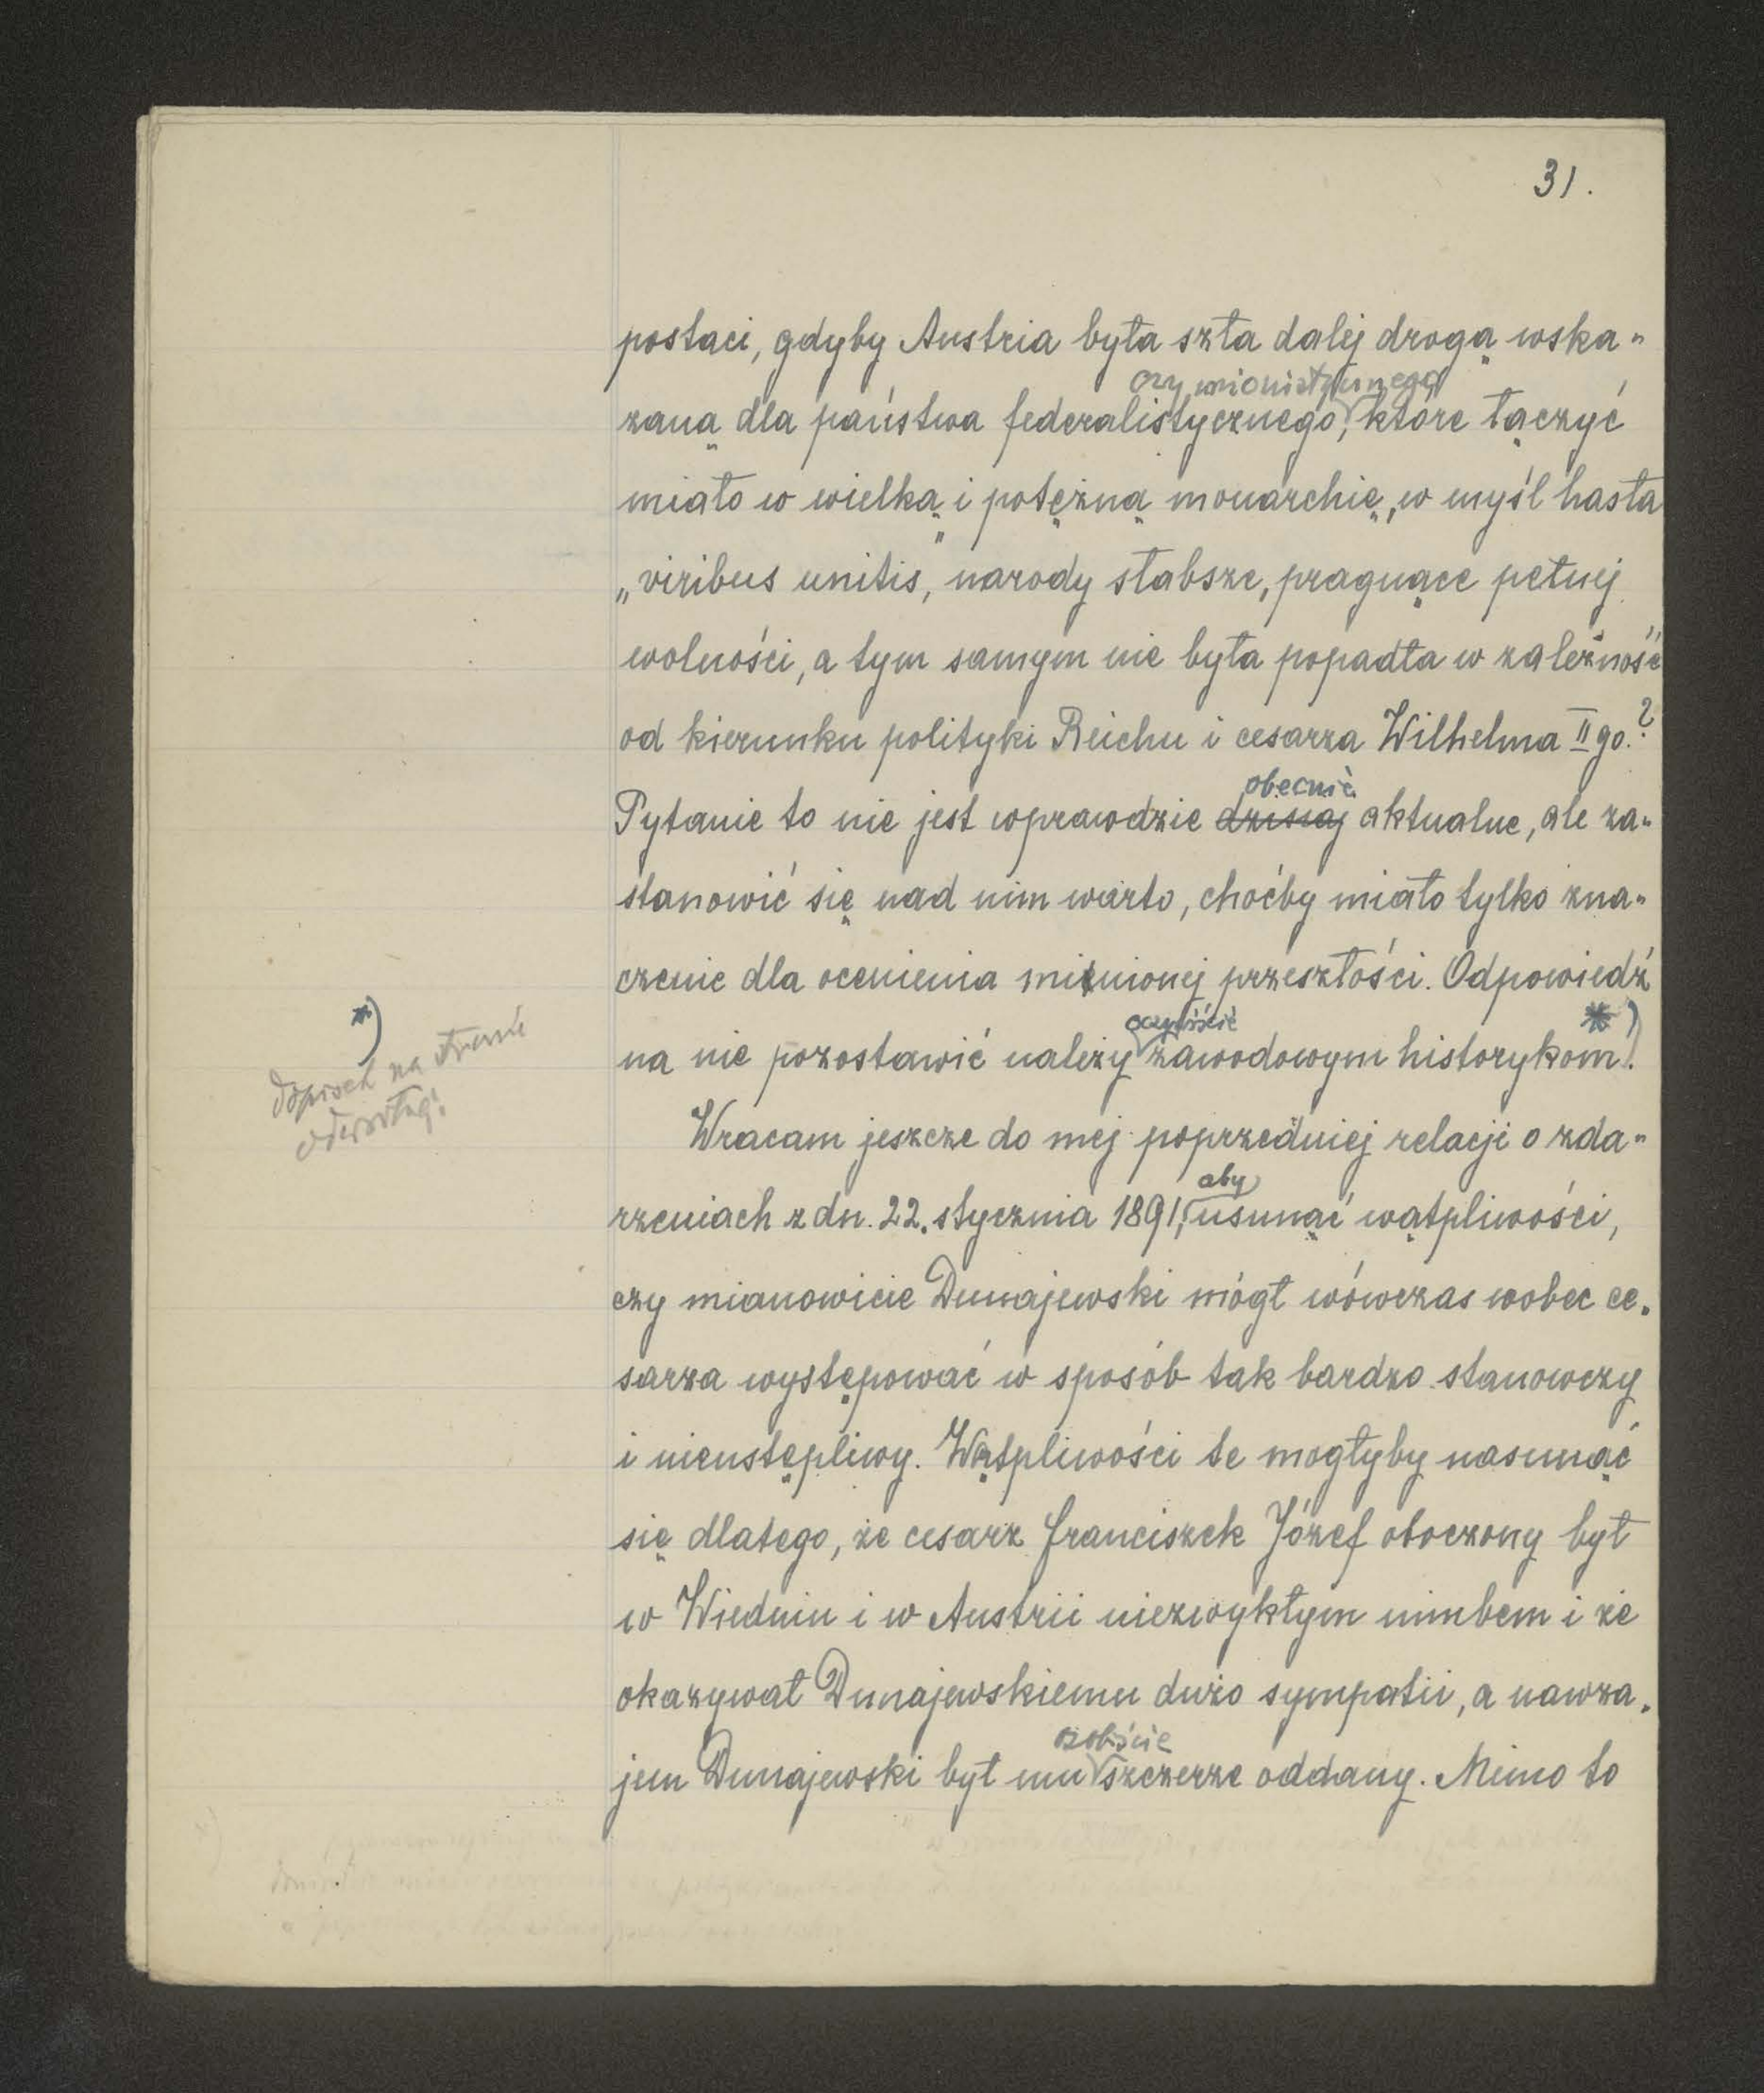 31.
postaci, gdyby Austria była szła dalej drogą wska„
czy unionistycznego
zaną dla państwa federalistycznego, które łączyć
miało w wielką i potężną monarchię, w myśl hasła
„viribus unitis, narody słabsze, pragnące pełnej
wolności, a tym samym nie była popadła w zależność
od kierunku polityki Reichu i cesarza Wilhelma II go.?
obecnie
Pytanie to nie jest wprawdzie dzisiaj aktualne, ale za„
stanowić się nad nim warto, choćby miało tylko zna„
czenie dla ocenienia minionej przeszłości. Odpowiedź
oczywiście *)
na nie pozostawić należy zawodowym historykom!
*)
dopisek na stronie
odwrotnej!
Wracam jeszcze do mej poprzedniej relacji o zda„
aby
rzeniach z dn. 22. stycznia 1891, usunąć wątpliwości,
czy mianowicie Dunajewski mógł wówczas wobec ce„
sarza występować w sposób tak bardzo stanowczy
i nieustępliwy. Wątpliwości te mogłyby nasunąć
się dlatego, że cesarz Franciszek Józef otoczony był
w Wiedniu i w Austrii niezwykłym nimbem i że
okazywał Dunajewskiemu dużo sympatii, a nawza„
osobiście
jem Dunajewski był mu szczerze oddany. Mimo to